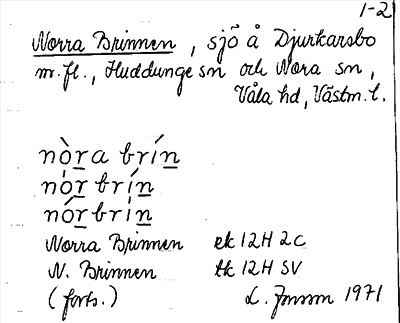 1-2
Norra Brinnen, sjö å Djurkarsbo
m.fl., Huddunge sn och Nora sn,
Våla hd, Västm.l.
nò̱ra brín̠
nò̱r brín̠
nó̱r brín̠
Norra Brinnen ek 12H 2C
N. Brinnen tk 12H SV
(forts.) L. Jonsson 1971